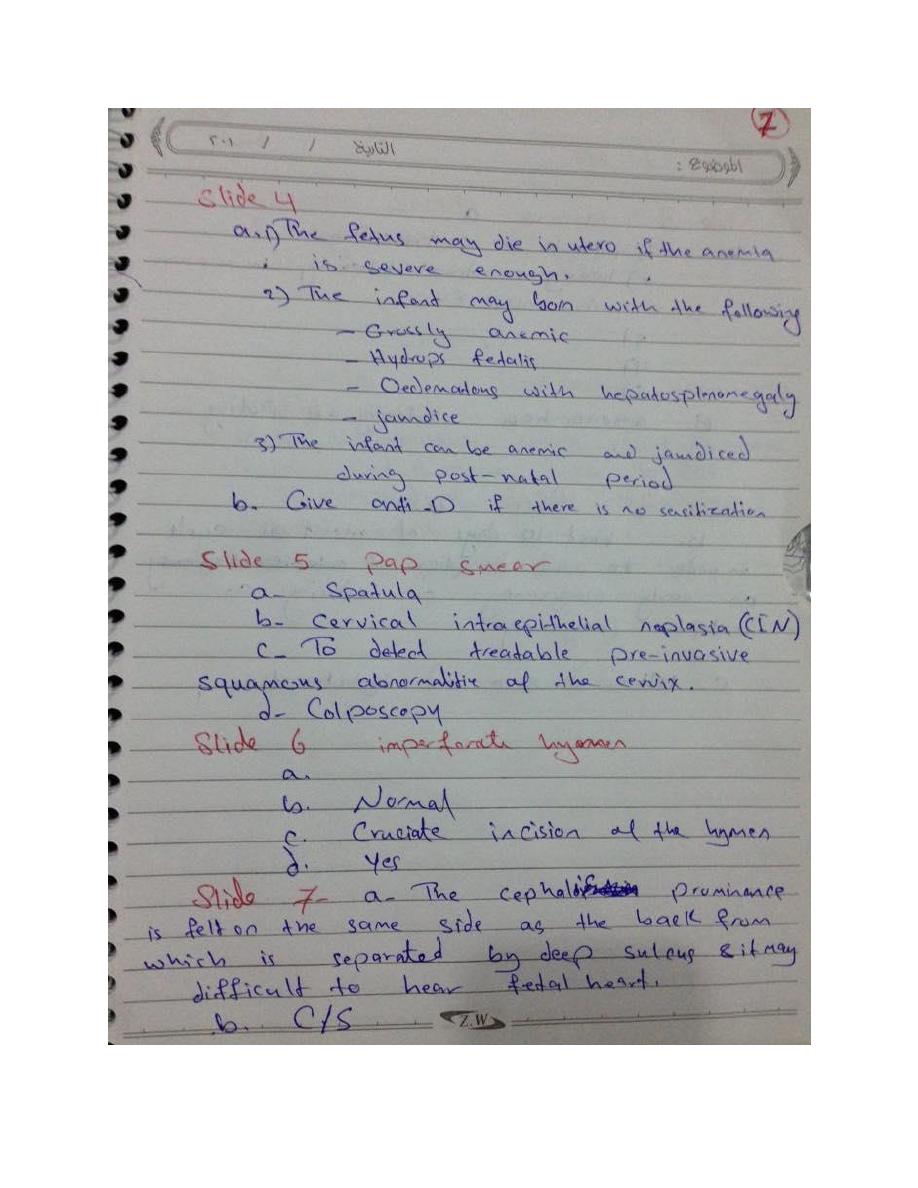 7
التاريخ / / ٢٠١
الموضوع :
Slide 4
a.1) The fetus may die in utero if the anemia
is severe enough.
2) The infant may born with the following
- Grossly anemic
- Hydrops fetalis
- Oedematous with hepatosplenomegaly
- jaundice
3) The infant can be anemic and jaundiced
during post-natal period
b. Give anti-D if there is no sesitization
Slide 5 Pap smear
a- Spatula
b- Cervical intraepithelial neplasia (CIN)
c- To detect treatable pre-invasive
squamous abnormalitie of the cervix.
d- Colposcopy
Slide 6 imperforate hymen
a.
b. Normal
c. Cruciate incision of the hymen
d. Yes
Slide 7- a- The cephalic prominance
is felt on the same side as the back from
which is separated by deep sulcus & it may
difficult to hear fetal heart.
b. C/S
Z.W